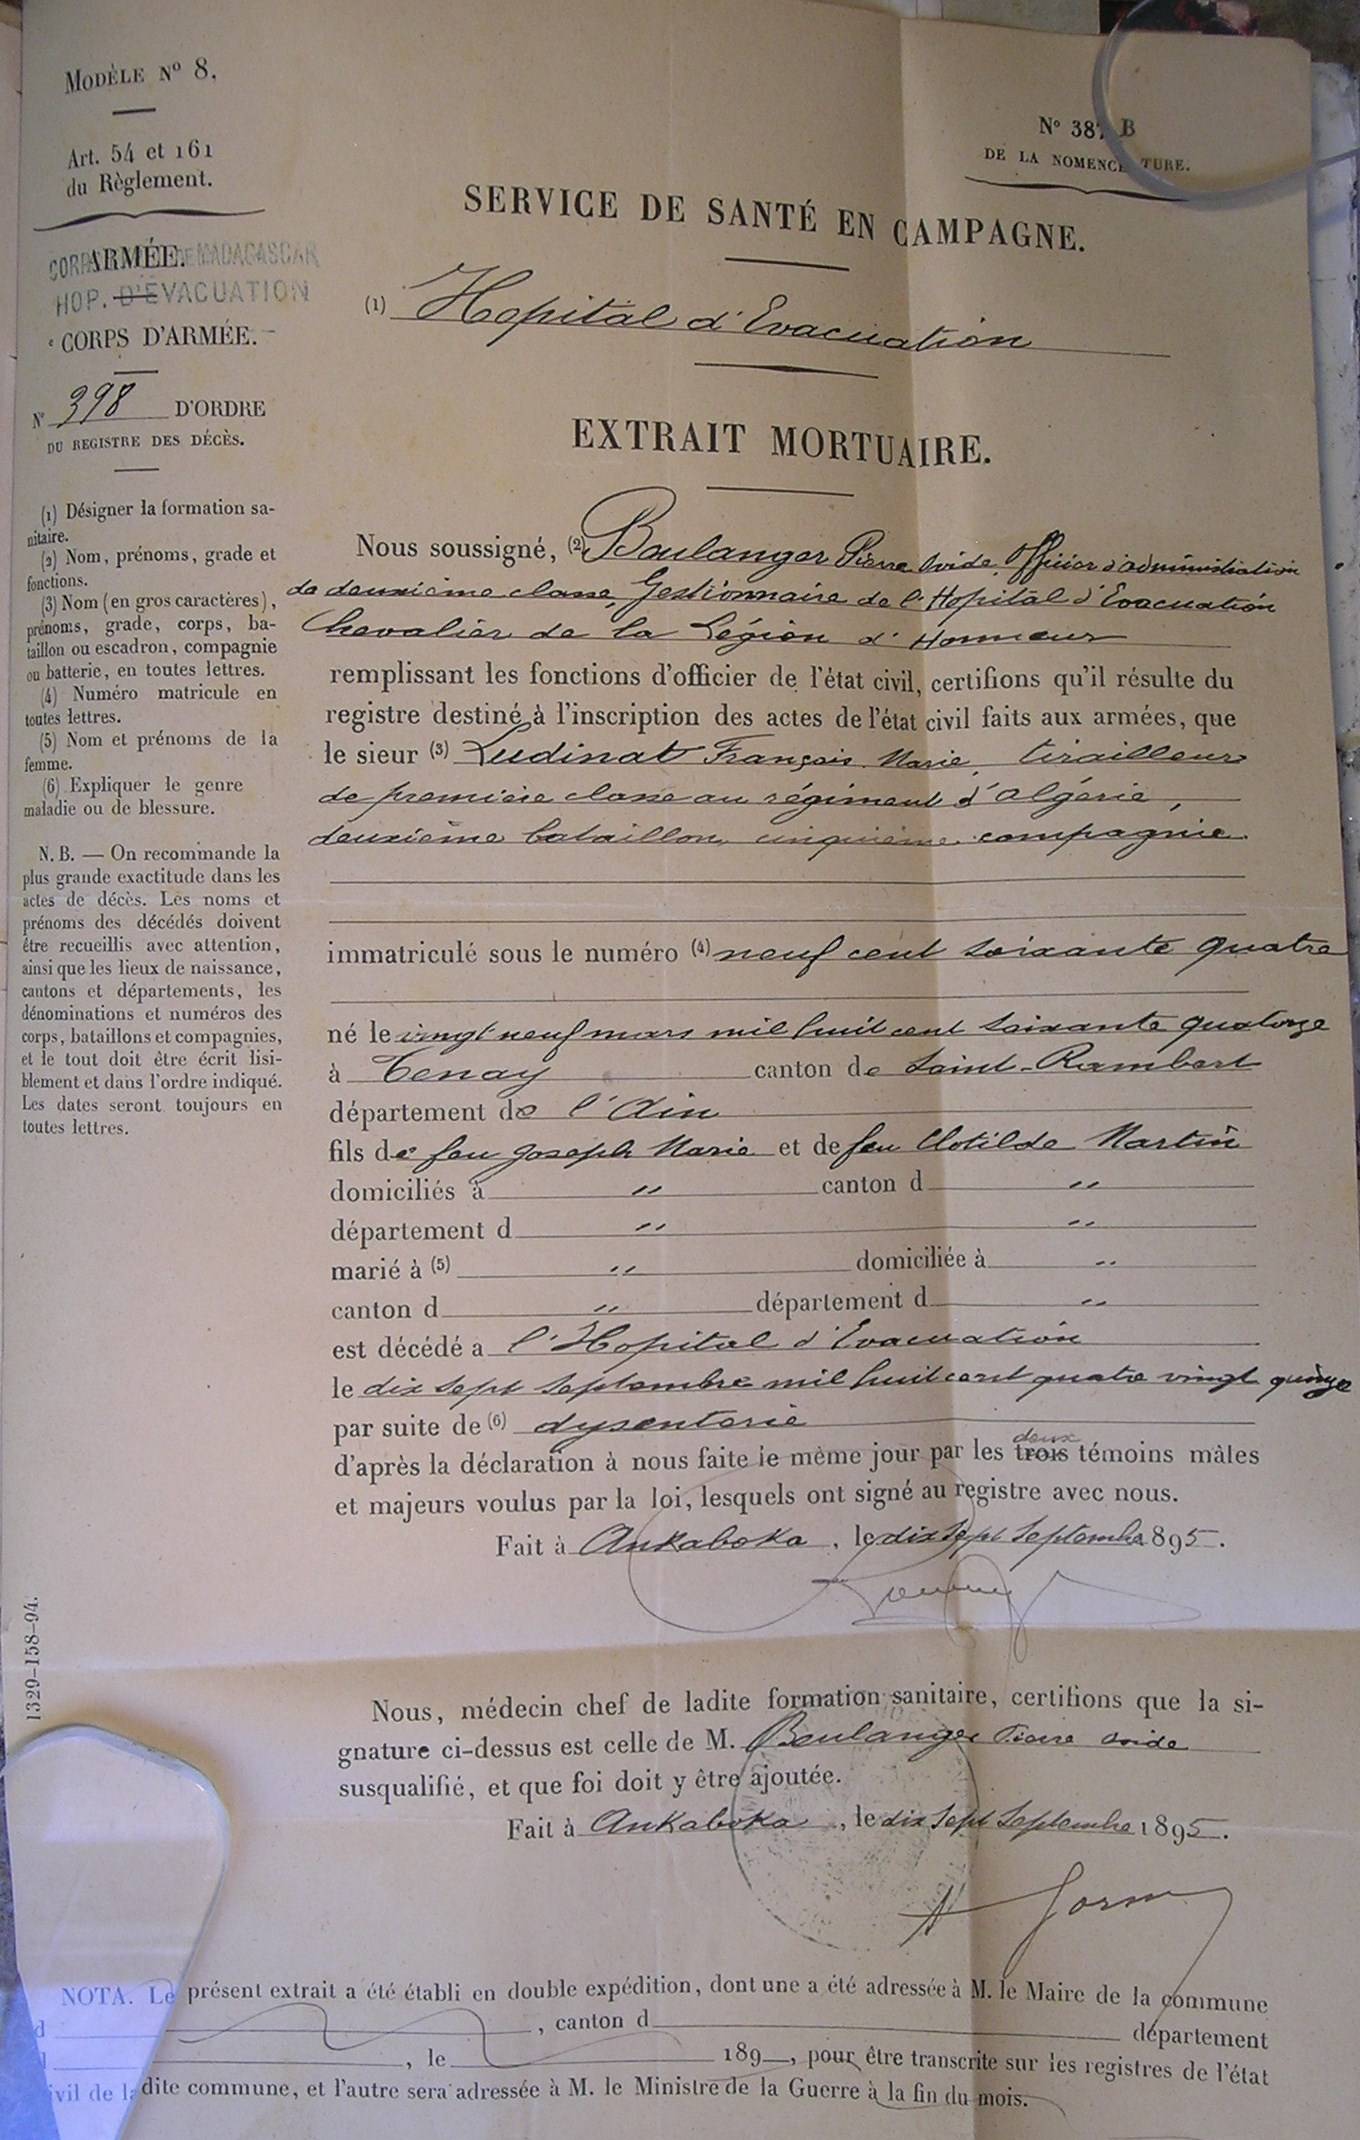 MODÈLE N° 8.
Art. 54 et 161
du Règlement.
ARMÉE.
CORPS DE MADAGASCAR
HOP. D'EVACUATION
CORPS D'ARMÉE.
N° 398 D'ORDRE
DU REGISTRE DES DÉCÈS.
(1) Désigner la formation sa-
nitaire.
(2) Nom, prénoms, grade et
fonctions.
(3) Nom (en gros caractères),
prénoms, grade, corps, ba-
taillon ou escadron, compagnie
ou batterie, en toutes lettres.
(4) Numéro matricule en
toutes lettres.
(5) Nom et prénoms de la
femme.
(6) Expliquer le genre
maladie ou de blessure.
N. B. — On recommande la
plus grande exactitude dans les
actes de décès. Les noms et
prénoms des décédés doivent
être recueillis avec attention,
ainsi que les lieux de naissance,
cantons et départements, les
dénominations et numéros des
corps, bataillons et compagnies,
et le tout doit être écrit lisi-
blement et dans l'ordre indiqué.
Les dates seront toujours en
toutes lettres.
1329-158-94.
N° 387 B
DE LA NOMENC TURE.
SERVICE DE SANTÉ EN CAMPAGNE.
(1) Hopital d'Evacuation
EXTRAIT MORTUAIRE.
Nous soussigné, (2) Boulanger Pierre Ovide, Officier d'administration
de deuxième classe, Gestionnaire de l'Hopital d'Evacuation
Chevalier de la Légion d'Honneur
remplissant les fonctions d'officier de l'état civil, certifions qu'il résulte du
registre destiné à l'inscription des actes de l'état civil faits aux armées, que
le sieur (3) Ludinat François Marie, tirailleur
de première classe au régiment d'Algérie,
deuxième bataillon, cinquième compagnie
immatriculé sous le numéro (4) neuf cent soixante quatre
né le vingt neuf mars mil huit cent soixante quatorze
à Tenay canton de Saint-Rambert
département de l'Ain
fils de feu Joseph Marie et de feu Clotilde Martin
domiciliés à " canton d "
département d " "
marié à (5) " domiciliée à "
canton d " département d "
est décédé a l'Hopital d'Evacuation
le dix sept septembre mil huit cent quatre vingt quinze
par suite de (6) dysenterie
d'après la déclaration à nous faite le même jour par les trois deux témoins mâles
et majeurs voulus par la loi, lesquels ont signé au registre avec nous.
Fait à Ankaboka, le dix sept Septembre 1895.
Nous, médecin chef de ladite formation sanitaire, certifions que la si-
gnature ci-dessus est celle de M. Boulanger Pierre Ovide
susqualifié, et que foi doit y être ajoutée.
Fait à Ankaboka, le dix sept Septembre 1895.
NOTA. Le présent extrait a été établi en double expédition, dont une a été adressée à M. le Maire de la commune
d , canton d département
d , le 189 , pour être transcrite sur les registres de l'état
ivil de ladite commune, et l'autre sera adressée à M. le Ministre de la Guerre à la fin du mois.